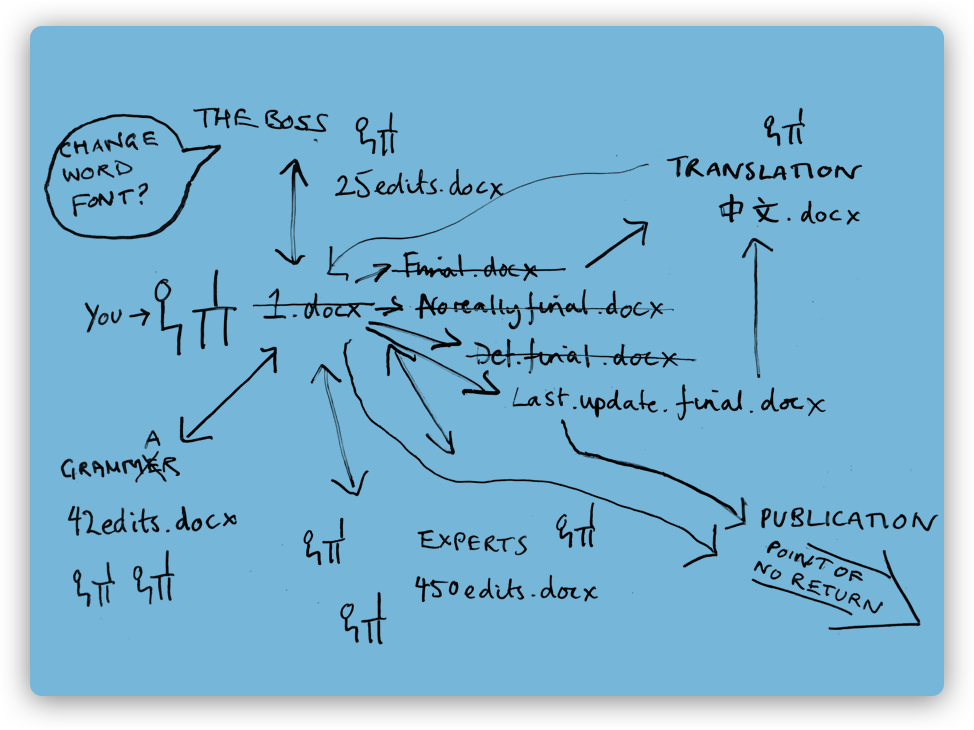 THE BOSS
CHANGE
WORD
FONT?
25edits.docx
TRANSLATION
中文.docx
Final.docx
You
1.docx
No really final.docx
Det.final.docx
Last.update.final.docx
A
GRAMMER
42edits.docx
EXPERTS
450edits.docx
PUBLICATION
POINT OF
NO RETURN